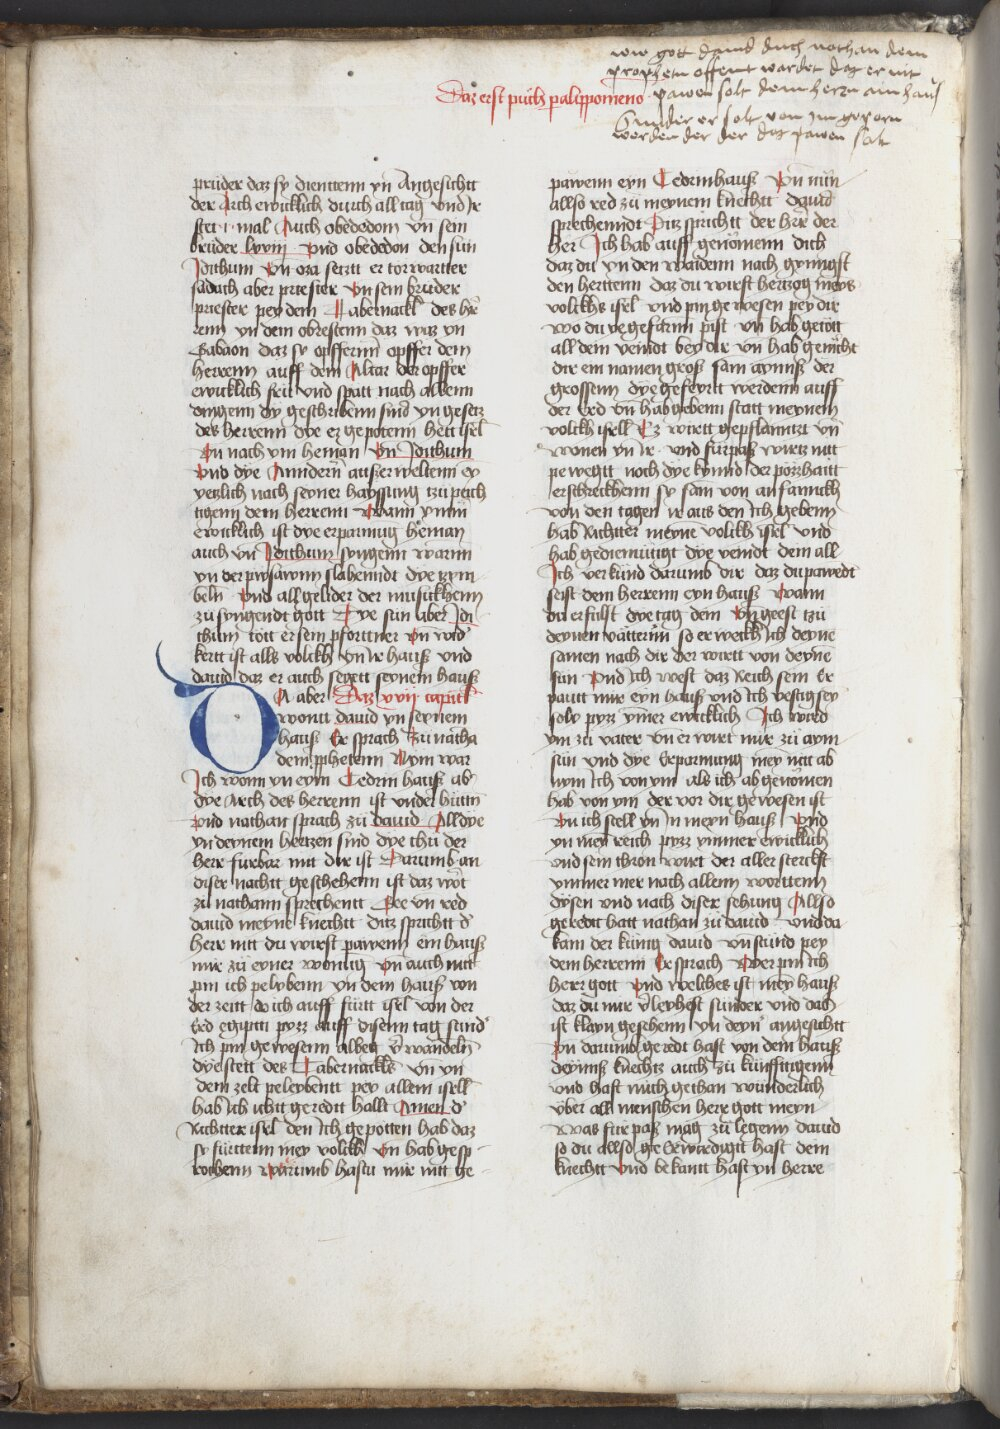 wie gott dauid durch nathan dem
propheten offent wardet daz er nit
pawen solt dem herrn ain haus
Sunder er solt von im geporn
werden der der daz pawen solt
Daz erst púch paralippomeno
prúder daz sy dienttenn yn Angesichtt
der Arch ewicklich durch all tag vnd Ir
stet · i · mal Auch obededom vn̄ sein
brúder lxviij vnd obededon den sún
Jdithum vn̄ oza setzt er torwartter
sadach aber priester vn̄ sein brúder
priester pey dem Tabernackl des her
renn yn dem obrestenn daz waz yn
Gabaon daz sy opfferinn opffer dem
herrenn auff dem Altar der opffer
ewicklich frú vnd spatt nach allenn
dingenn dy geschribenn sind yn gesetz
des herrenn dye er gepotenn hett isrl
vn̄ nach ym heman vn̄ Jdithum
vnd dye Anndernn̄ ausserweltenn ey
yetzlich nach seyner hayssung tzú peich
tigenn dem herrenn wann ynnn
ewicklich ist dye erparmūg heman
auch vn̄ Jdithum syngenn warnn
yn der pusawnn slahenndt dye tzym
beln vnd all gelider der musickhenn
zú syngendt gott Dye sún aber Jdi
thum tött er sein pforttner vn̄ wid
kertt ist alls volckh yn ir hauß vnd
dauid daz er auch segett seynem hauß
DA aber Daz xvij capitel
wonnt dauid yn seynem
hauß Er sprach zú natha
dem pphetenn Nym war
Ich wonn yn eym Cedrin hauß ab
dye Arch des herrenn ist vnder húttn
vnd nathan sprach zú dauid All dye
yn deynem hertzen sind dye thú der
herr fúrbar mit dir ist Darumb an
diser nachtt geschehenn ist daz wort
zú nathann sprechentt Gee vn̄ red
dauid meyne knechtt ditz sprichtt d
herr nit du wirst pawenn ein hauß
mir zú eyner wonūg vn̄ auch nitt
pin ich pelybenn yn dem hauß von
der zeitt do ich auß fúrtt isrl von der
Erd egiptti pyzz auff disenn tag sund
Ich pin gewesenn albeg v̄wandeln
dye stett des Tabernackls vn̄ yn
dem zelt peleybentt pey allem isrll
hab ich icht geredtt hallt Ainen d
richtter isrl den ich gepotten hab daz
sy fúrttenn mey volckh vn̄ hab gesp-
rochenn warumb hastu mir nitt ge
pawenn eyn Cedrinhauß vn̄ nún
allso red zú meynem knechtt dauid
sprechenndt Ditz sprichtt der her der
her Ich hab auff genōmenn dich
daz dú yn den waidenn nach gyngst
den herttenn daz dú wirst hertzog meys
volckhs isrl vnd pin gewesen pey dir
wo dú ye gefarnn pist vn̄ hab getött
all dein veindt bey dir vn̄ hab gemacht
dir ein namen groß sam aynniß der
grossenn dye gefeyrtt werdenn auff
der Erd vn̄ hab gebenn statt meynem
volckh isrll Ez wirtt gepflanntzt vn̄
wonen yn ir vnd fúrpaß wirtz nitt
pewegtt noch dye kynnd der pozzhaitt
erschreckhenn sy sam von anfannckh
von den tagen ir aus den ich gebenn
hab Richtter meyne volckh isrl vnd
hab gediemúttigt dye veindt dein all
Ich verkúnd darumb dir daz dú pawedt
seist dem herrenn eyn hauß wann
dú erfúlst dye tag dem vn̄ geest tzú
deynen vätterinn so erweckh Ich deyne
samen nach dir der wirtt von deyne
sún vnd ich vest daz Reich sein Er
pautt mir eyn hauß vnd ich vestig sey
solb pyzz ymer ewicklich Ich wird
ym zú vater vn̄ er wirt mir zú aym
sún vnd dye Erparmung mey nit ab
nym ich von ym als ich abgenōmen
hab von ym der vor dir gewesen ist
vn̄ ich stell yn In meyn hauß vnd
yn mey reich pyzz ymmer ewicklich
vnd sein thron wirt der aller sterckst
ymmer mer nach allenn worttenn
dysen vnd nach diser sehung Allso
geredtt hatt nathan zú dauid vnd da
kam der kúnig dauid vn̄ stúnd pey
dem herrenn Er sprach wer pin ich
herr gott vnd welches ist mey hauß
daz dú mir v̄leyhest súnder vnd daz
ist klayn gesehenn yn deyn angesichtt
vn̄ darumb geredt hast von dem hauß
deynnß knechtz auch zú kúnfftigenn
vnd hast mich gethan wúnderlich
vber all menschen herr gott meyn
was fúrpaß mag zú legenn dauid
so dú allso geErwirdigtt hast dein
knechtt vnd bekantt hast yn herre